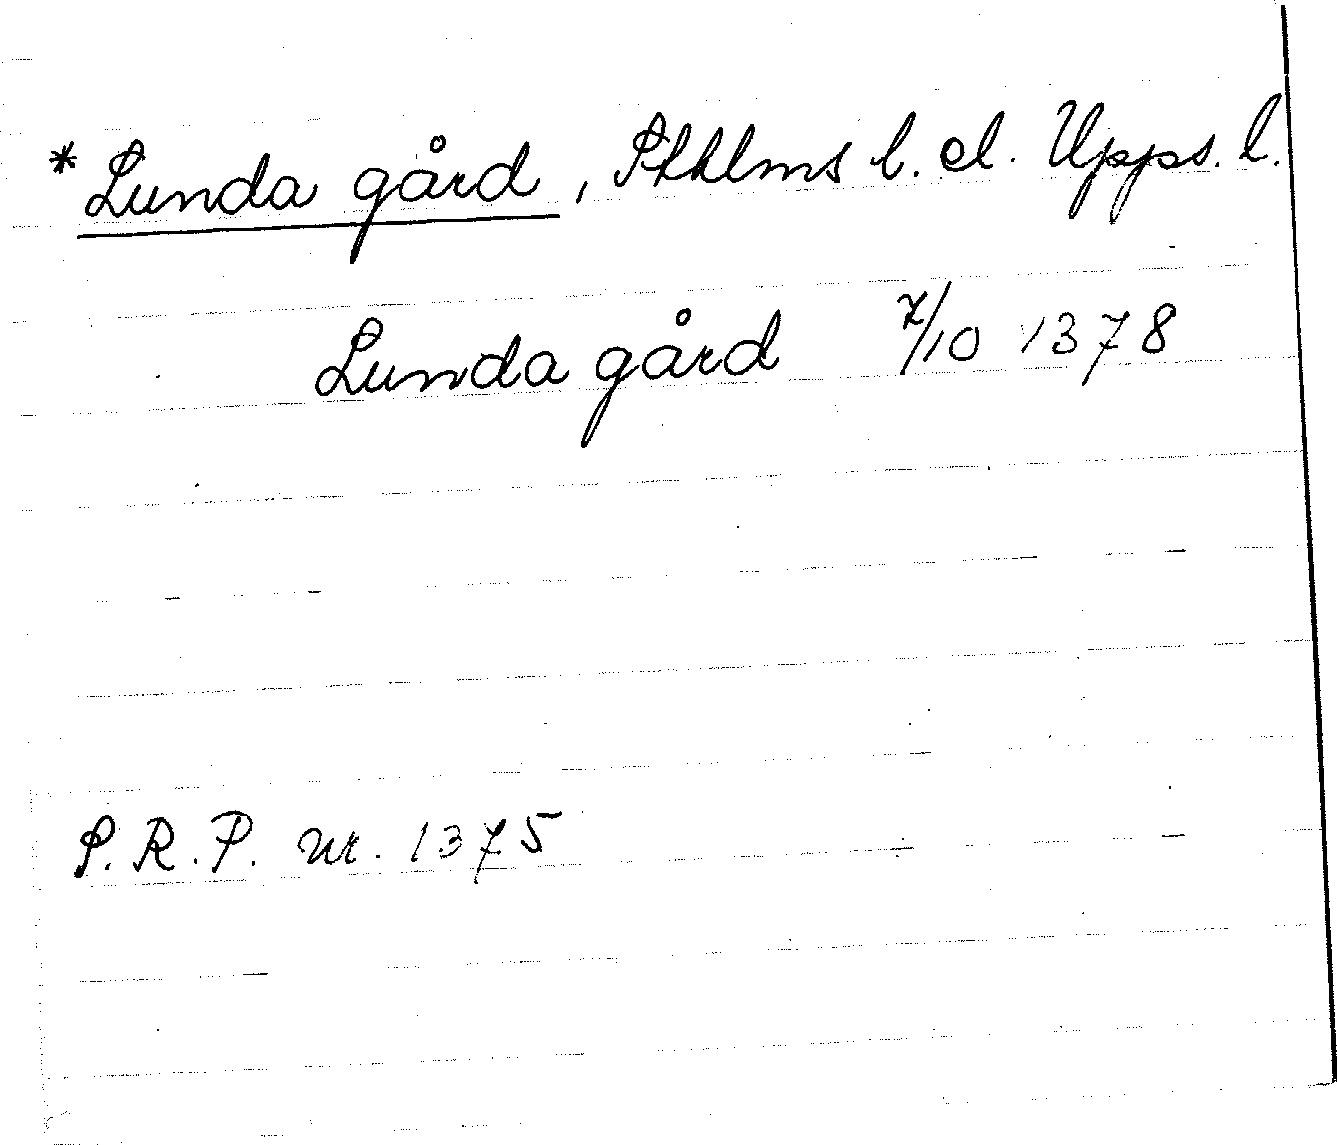 *Lunda gård, Sthlms l. el. Upps. l.
Lunda gård 7/10 1378
S.R.P. nr. 1375